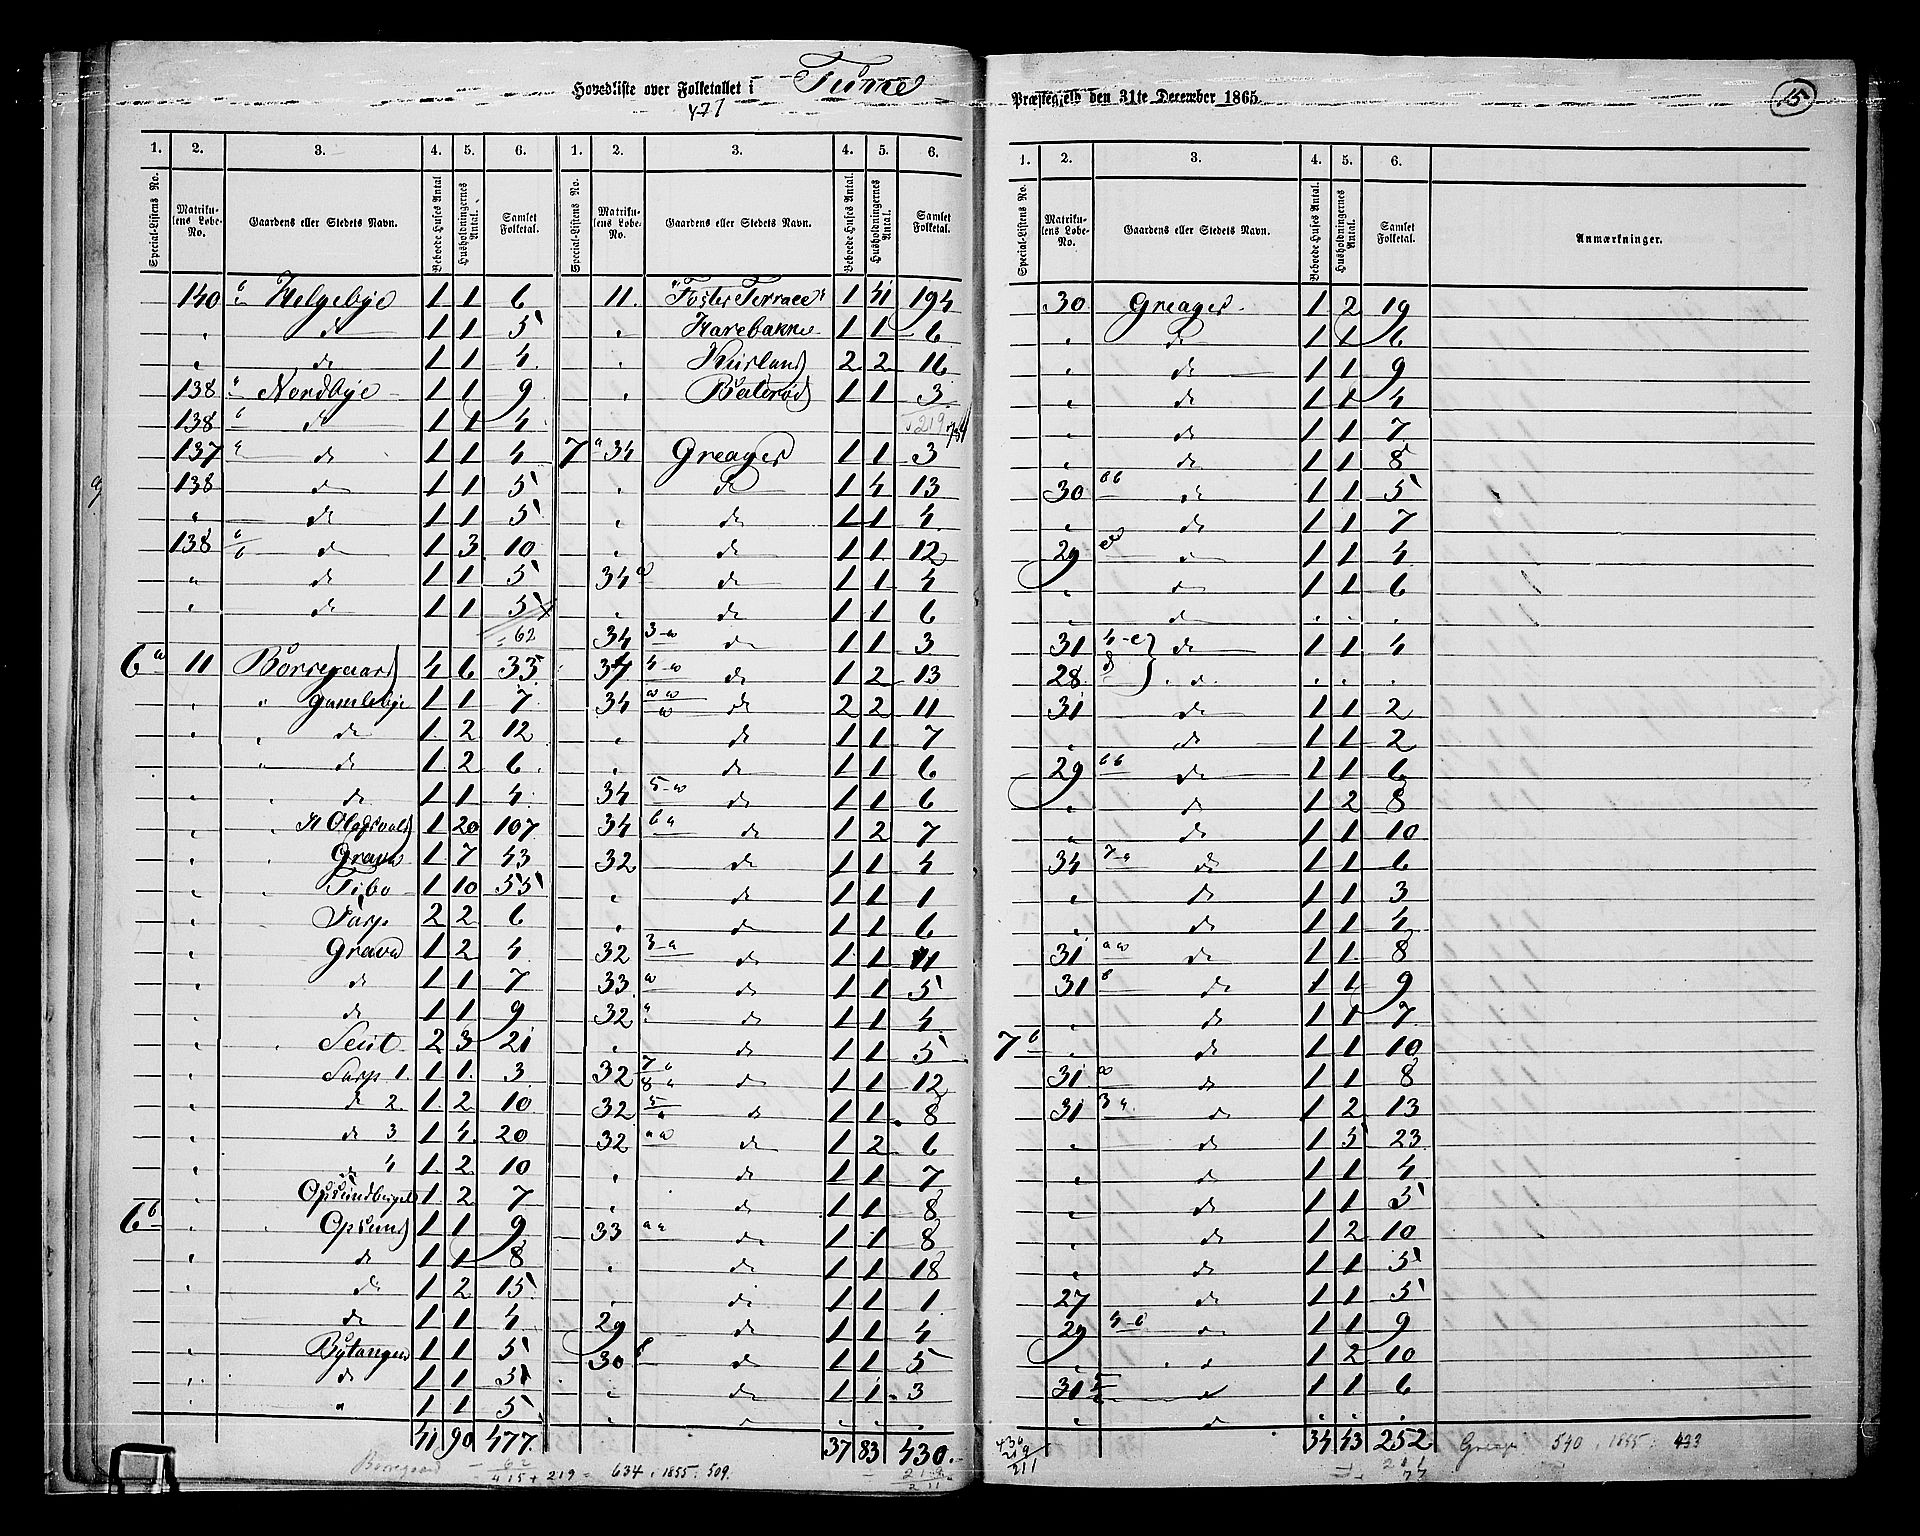 Hovedliste over Folketallet i Tune
477
Præstegjeld den 31te December 1865.
15
1. 2. 3. 4. 5. 6. 1. 2. 3. 4. 5. 6.
Special-Listens No. Matrikulens Løbe-No. Gaardens eller Stedets Navn. Beboede Huses Antal Husholdningernes Antal. Samlet Folketal. Special-Listens No. Matrikulens Løbe-No. Gaardens eller Stedets Navn. Beboede Huses Antal. Husholdningernes Antal. Samlet Folketal.
140 b Helgebye 1 1 6
" do 1 1 5
" do 1 1 4
138 a Nordbye 1 1 9
138 b do 1 1 4
137 a do 1 1 4
138 do 1 1 5
" do 1 1 5
138 b/b do 1 3 10
" do 1 1 5
" do 1 1 5
62
6a 11 Borregaard 4 6 33
" " Gamlebye 1 1 7
" " do 1 2 12
" " do 1 2 6
" " do 1 1 4
" " St Olafsvold 1 20 107
" " Grava 1 7 43
" " Tibo 1 10 55
" Sarp 2 2 6
" Grava 1 2 4
" do 1 1 7
" do 1 1 9
" " 2 3 21
" Sarp 1. 1 1 3
" do 2. 1 2 10
" do 3 1 4 20
" do 4 1 2 10
" Opsundberget 1 2 7
6b " " Opsund 1 1 9
" do 1 1 8
" do 1 2 15
" do 1 1 4
" Bytangen 1 1 5
" do 1 1 5
" " 1 1 5
41 90 477
Borregaard - 62
415 + 219 = 634, 1855: 509.
11. "Foster Terrace" 1 41 194
" Harebakke 1 1 6
" 2 2 16
" 1 1 3
219
7a 34 Greager 1 1 3
" do 1 4 13
" do 1 1 4
" do 1 1 12
34 do 1 1 4
" do 1 1 6
34 3-a do 1 1 3
34 4-a do 1 2 13
34 aa/a do 2 2 11
" do 1 1 7
" do 1 1 6
34 5-a do 1 1 6
34 6a do 1 2 7
32 do 1 1 4
" do 1 1 1
" do 1 1 6
32 3-a do 1 1 11
33 a do 1 1 5
32 " do 1 1 4
" do 1 1 5
32 7a/8a do 1 1 12
32 5/a do 1 1 8
32 aa do 1 2 6
" do 1 1 7
" do 1 1 8
33 aa do 1 1 8
" do 1 1 18
" do 1 1 1
29 do 1 1 4
30 b do 1 1 5
" do 1 1 3
" do " " "
37 83 430
219
211
1. 2. 3. 4. 5. 6.
Special-Listens No. Matrikulens Løbe-No. Gaardens eller Stedets Navn. Beboede Huses Antal. Husholdningernes Antal. Samlet Folketal. Anmærkninger.
30 Greager 1 2 19
" do 1 1 6
" do 1 1 9
" do 1 1 4
" do 1 1 7
" do 1 1 8
30 bb do 1 1 5
" do 1 1 7
29 do 1 1 4
" do 1 1 6
" do " " "
31 4-c do 1 1 4
28 do " " "
31 do 1 1 2
" do 1 1 2
29 bb do 1 1 6
" do 1 2 8
" do 1 1 10
34 7-a do 1 1 6
" do 1 1 3
" do 1 1 4
31 aa do 1 1 8
31 b do 1 1 9
" do 1 1 7
7b " do 1 1 10
31 a do 1 1 8
31 3a do 1 2 13
" do 1 5 23
" do 1 1 4
" do 1 1 5
" do 1 2 10
" do 1 1 5
27 do 1 1 5
29 4-b do 1 1 9
" do 1 2 10
31 do 1 1 6
" do " " "
34 43 252
430
219
211
Greager 540, 1855: 433